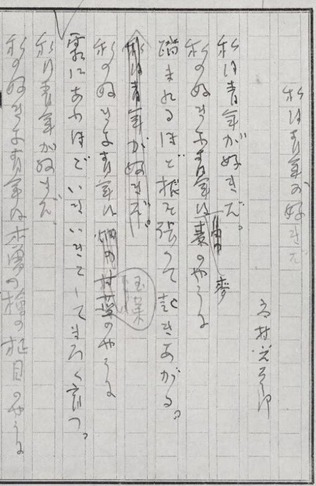 私は青年が好きだ
高村光太郎
私は青年が好きだ。
私の好きな青年は麦のやうに
踏まれるほど根を張つて起きあがる。
私は青年が好きだ。
私の好きな青年は玉菜のやうに
霜にあへばあふほどいきいきとしてまろく育つ。
私は青年が好きだ。
私の好きな青年は木曽の檜の柾目のやうに